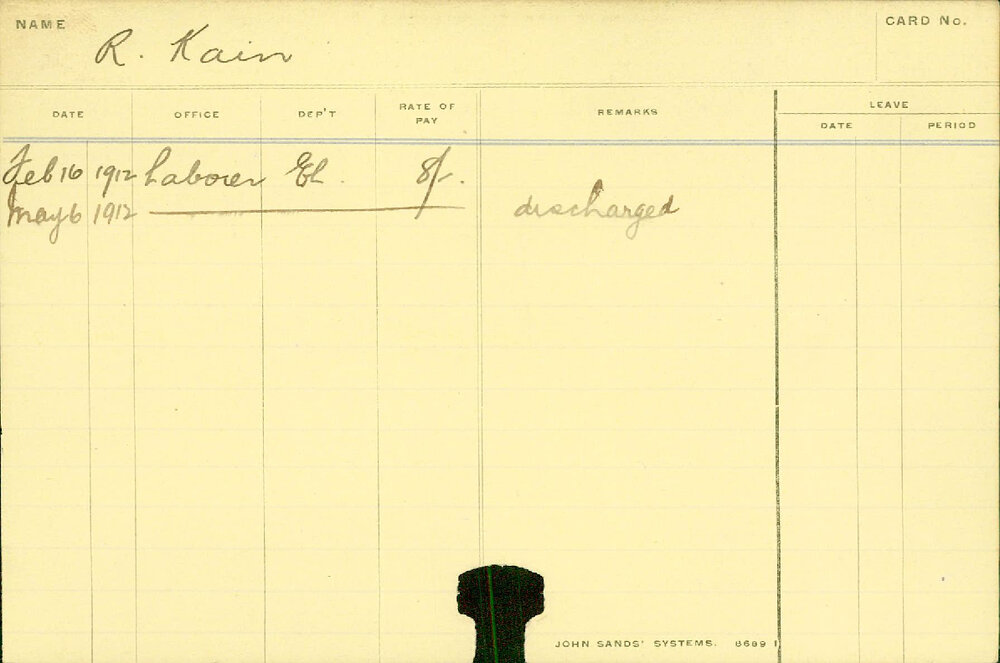 NAME
R. Kain
CARD No.
DATE OFFICE DEP'T RATE OF PAY REMARKS LEAVE
DATE PERIOD
Feb 16 1912 Laborer El. 8/-.
May 6 1912 discharged
JOHN SANDS' SYSTEMS. 8689 1